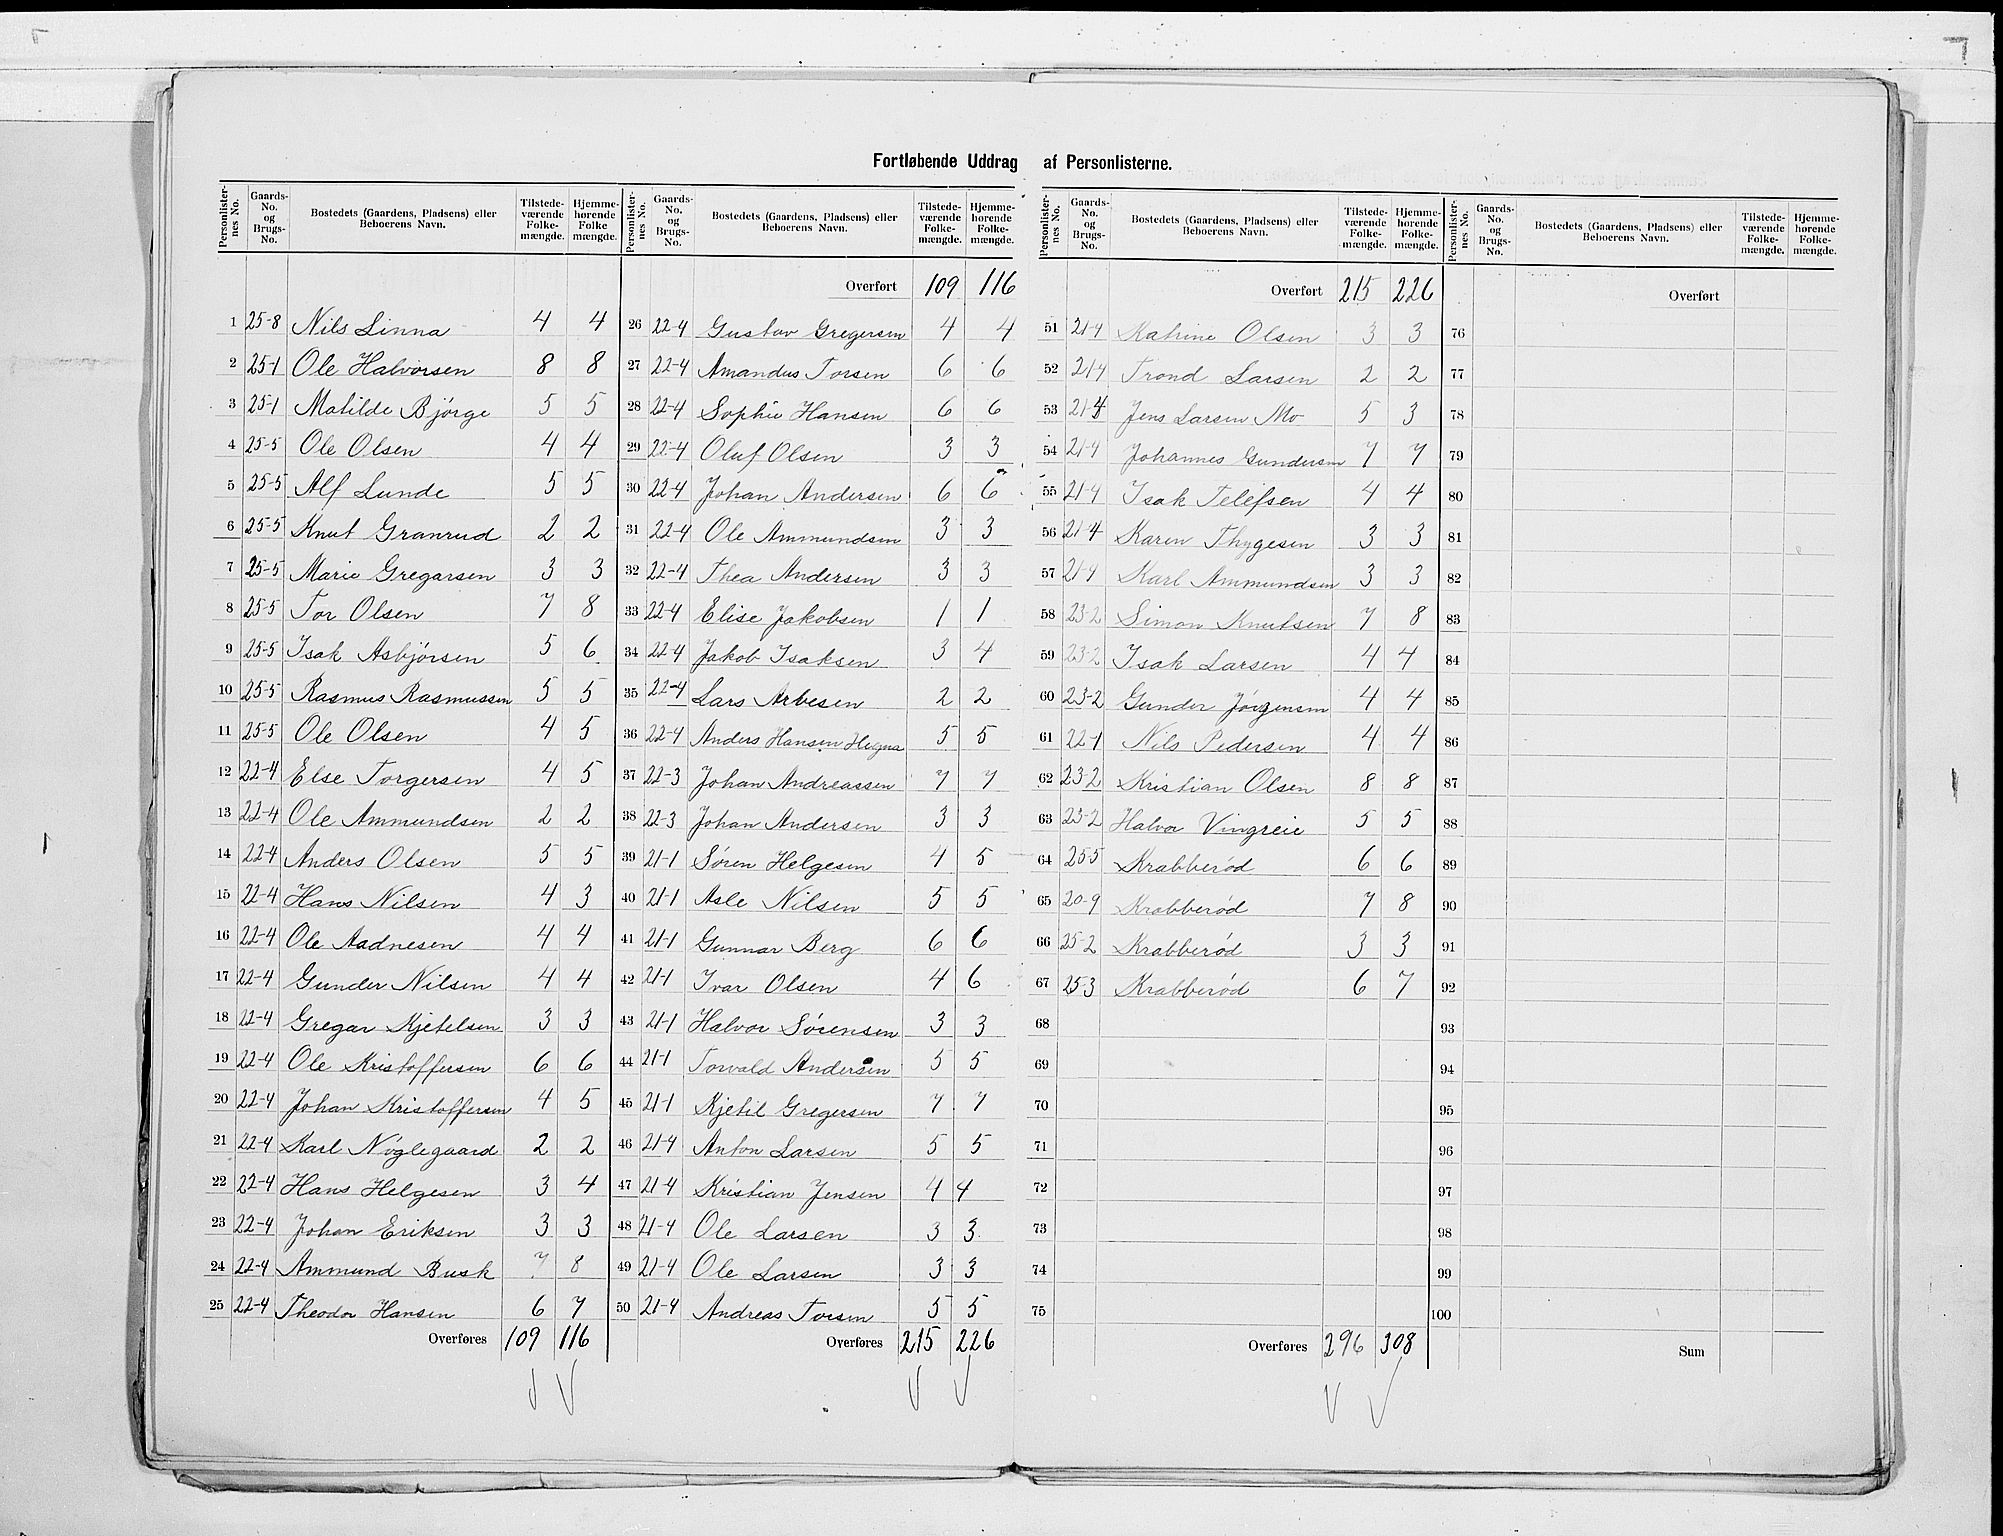 Fortløbende Uddrag af Personlisterne.
Personlister-nes No. Gaards-No. og Brugs-No. Bostedets (Gaardens, Pladsens) eller Beboerens Navn. Tilstede-værende Folke-mængde. Hjemme-hørende Folke mængde.
1 25-8 Nils Linna 4 4
2 25-1 Ole Halvorsen 8 8
3 25-1 Matilde Bjørge 5 5
4 25-5 Ole Olsen 4 4
5 25-5 Alf Lunde 5 5
6 25-5 Knut Granrud 2 2
7 25-5 Marie Gregarsen 3 3
8 25-5 Tor Olsen 7 8
9 25-5 Isak Asbjørsen 5 6
10 25-5 Rasmus Rasmussen 5 5
11 25-5 Ole Olsen 4 5
12 22-4 Else Torgersen 4 5
13 22-4 Ole Ammundsen 2 2
14 22-4 Anders Olsen 5 5
15 22-4 Hans Nilsen 4 3
16 22-4 Ole Aadnesen 4 4
17 22-4 Gunder Nilsen 4 4
18 22-4 Gregar Kjetelsen 3 3
19 22-4 Ole Kristoffersen 6 6
20 22-4 Johan Kristoffersen 4 5
21 22-4 Karl Nøglegaard 2 2
22 22-4 Hans Helgesen 3 4
23 22-4 Johan Eriksen 3 3
24 22-4 Ammund Busk 7 8
25 22-4 Theodor Hansen 6 7
Overføres 109 116
Personlister-nes No. Gaards-No. og Brugs-No. Bostedets (Gaardens, Pladsens) eller Beboerens Navn. Tilstede-værende Folke-mængde. Hjemme-hørende Folke-mængde.
Overført 109 116
26 22-4 Gustav Gregersen 4 4
27 22-4 Amandus Torsen 6 6
28 22-4 Sophie Hansen 6 6
29 22-4 Oluf Olsen 3 3
30 22-4 Johan Andersen 6 6
31 22-4 Ole Ammundsen 3 3
32 22-4 Thea Andersen 3 3
33 22-4 Elise Jakobsen 1 1
34 22-4 Jakob Isaksen 3 4
35 22-4 Lars Arbesen 2 2
36 22-4 Anders Hansen 5 5
37 22-3 Johan Andreassen 7 7
38 22-3 Johan Andersen 3 3
39 21-1 Søren Helgesen 4 5
40 21-1 Asle Nilsen 5 5
41 21-1 Gunnar Berg 6 6
42 21-1 Ivar Olsen 4 6
43 21-1 Halvor Sørensen 3 3
44 21-1 Torvald Andersen 5 5
45 21-1 Kjetil Gregersen 7 7
46 21-4 Anton Larsen 5 5
47 21-4 Kristian Jensen 4 4
48 21-4 Ole Larsen 3 3
49 21-4 Ole Larsen 3 3
50 21-4 Andreas Torsen 5 5
Overføres 215 226
Personlister-nes No. Gaards-No. og Brugs-No. Bostedets (Gaardens, Pladsens) eller Beboerens Navn. Tilstede-værende Folke-mængde. Hjemme-hørende Folke-mængde.
Overført 215 226
51 21-4 Katrine Olsen 3 3
52 21-4 Trond Larsen 2 2
53 21-4 Jens Larsen Mo 5 3
54 21-4 Johannes Gundersen 7 7
55 21-4 Isak Telefsen 4 4
56 21-4 Karen Thygesen 3 3
57 21-4 Karl Ammundsen 3 3
58 23-2 Simon Knutsen 7 8
59 23-2 Isak Larsen 4 4
60 23-2 Gunder Jørgensen 4 4
61 22-1 Nils Pedersen 4 4
62 23-2 Kristian Olsen 8 8
63 23-2 Halvor Vingreie 5 5
64 25-5 Krabberød 6 6
65 20-9 Krabberød 7 8
66 25-2 Krabberød 3 3
67 25-3 Krabberød 6 7
68
69
70
71
72
73
74
75
Overføres 296 308
Personlister-nes No. Gaards-No. og Brugs-No. Bostedets (Gaardens, Pladsens) eller Beboerens Navn. Tilstede-værende Folke-mængde. Hjemme-hørende Folke-mængde.
Overført
76
77
78
79
80
81
82
83
84
85
86
87
88
89
90
91
92
93
94
95
96
97
98
99
100
Sum